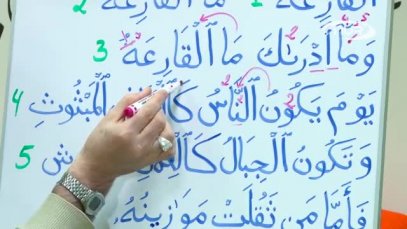 ٱلْقَارِعَةُ 1 مَا ٱلْقَارِعَةُ 2
وَمَآ أَدْرَىٰكَ مَا ٱلْقَارِعَةُ 3
يَوْمَ يَكُونُ ٱلنَّاسُ ٱلْمَبْثُوثِ 4
وَتَكُونُ ٱلْجِبَالُ 5
فَأَمَّا مَن ثَقُلَتْ مَوَٰزِينُهُۥ